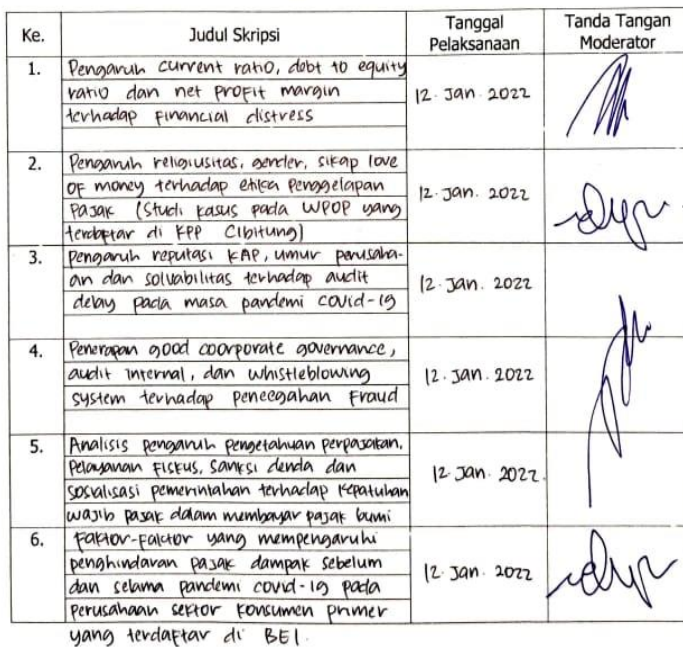 Ke. Judul Skripsi Tanggal Pelaksanaan Tanda Tangan Moderator
1. Pengaruh current ratio, debt to equity
ratio dan net profit margin 12. Jan. 2022
terhadap financial distress
2. Pengaruh religiusitas, gender, sikap love
of money terhadap etika Penggelapan 12. Jan. 2022
Pajak (Studi kasus pada WPOP yang
terdaptar di KPP Cibitung)
3. Pengaruh reputasi KAP, umur perusaha-
an dan solvabilitas terhadap audit 12. Jan. 2022
delay pada masa pandemi covid-19
4. Penerapan good coorporate governance,
audit internal, dan whistleblowing 12. Jan. 2022
system terhadap pencegahan Fraud
5. Analisis pengaruh pengetahuan perpajakan,
Pelayanan Fiskus, sanksi denda dan 12. Jan. 2022.
sosialisasi pemerintahan terhadap kepatuhan
wajib pajak dalam membayar pajak bumi
6. Faktor-Faktor yang mempengaruhi
penghindaran pajak dampak sebelum
dan selama pandemi covid-19 pada 12. Jan. 2022
perusahaan sektor konsumen primer
yang terdaftar di BEI.